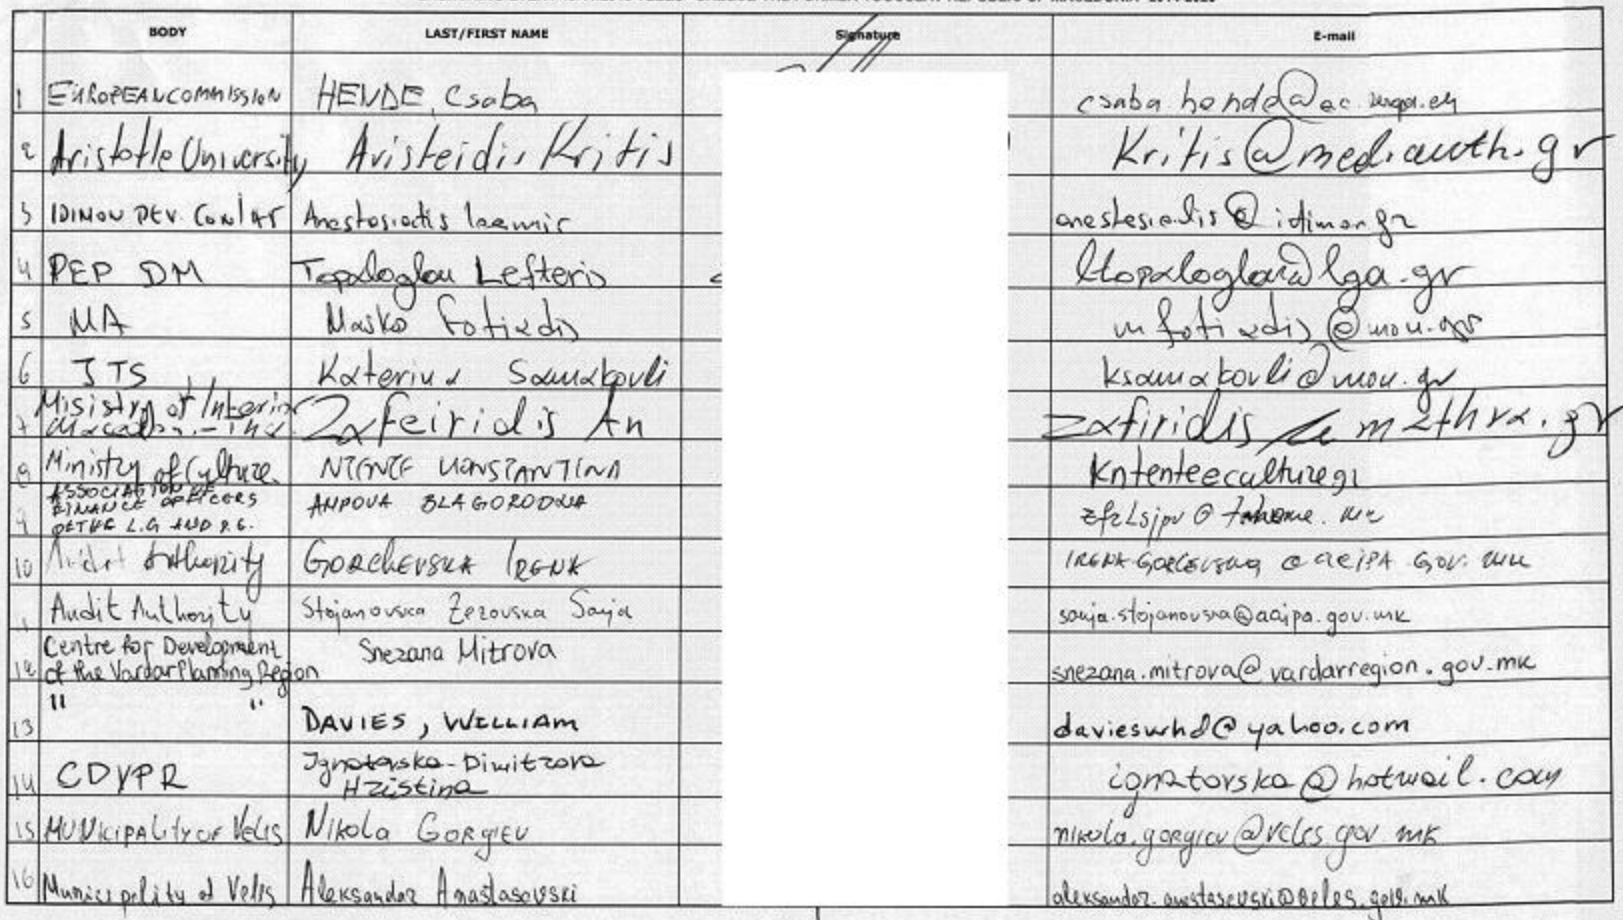 BODY LAST/FIRST NAME Signature E-mail
1 EUROPEAN COMMISSION HENDE, Csaba csaba.hende@ec.europa.eu
2 Aristotle University Aristeidis Kritis Kritis@med.auth.gr
3 IDIMON DEV. Anastasiadis @idimon.gr
4 PEP DM Topaloglou Lefteris ltopaloglou@lga.gr
5 MA Fotiadis mfotiadis@mou.gr
6 JTS Katerina Samakovli ksamakovli@mou.gr
7 Misistry of Interior Zafeiridis An zafiridis @ mathra.gr
8 Ministry of Culture. NTENTE KONSTANTINA kntenteeculturegr
ASSOCIATION OF
FINANCE OFFICERS ANDOVA BLAGORODNA
9 OF THE L.G AND P.E.
10 Audit Authority GORCHEVSKA IRENA IRENA.GORCEVSKA @ aaIPA.GOV.mk
11 Audit Authority Stojanovska Zezovska Sanja sanja.stojanovska@aaipa.gov.mk
Centre for Development Snezana Mitrova
12 of the Vardar Planning Region snezana.mitrova@vardarregion.gov.mk
" "
13 DAVIES, WILLIAM davieswhd@yahoo.com
14 CDVPR Ignatovska-Dimitrova ignatovska@hotmail.com
Hristina
15 MUNICIPALITY OF Veles Nikola GORGIEV nikola.gorgiev@veles.gov.mk
16 Municipality of Veles Aleksandar Anastasovski aleksandar.anastasovski@veles.gov.mk